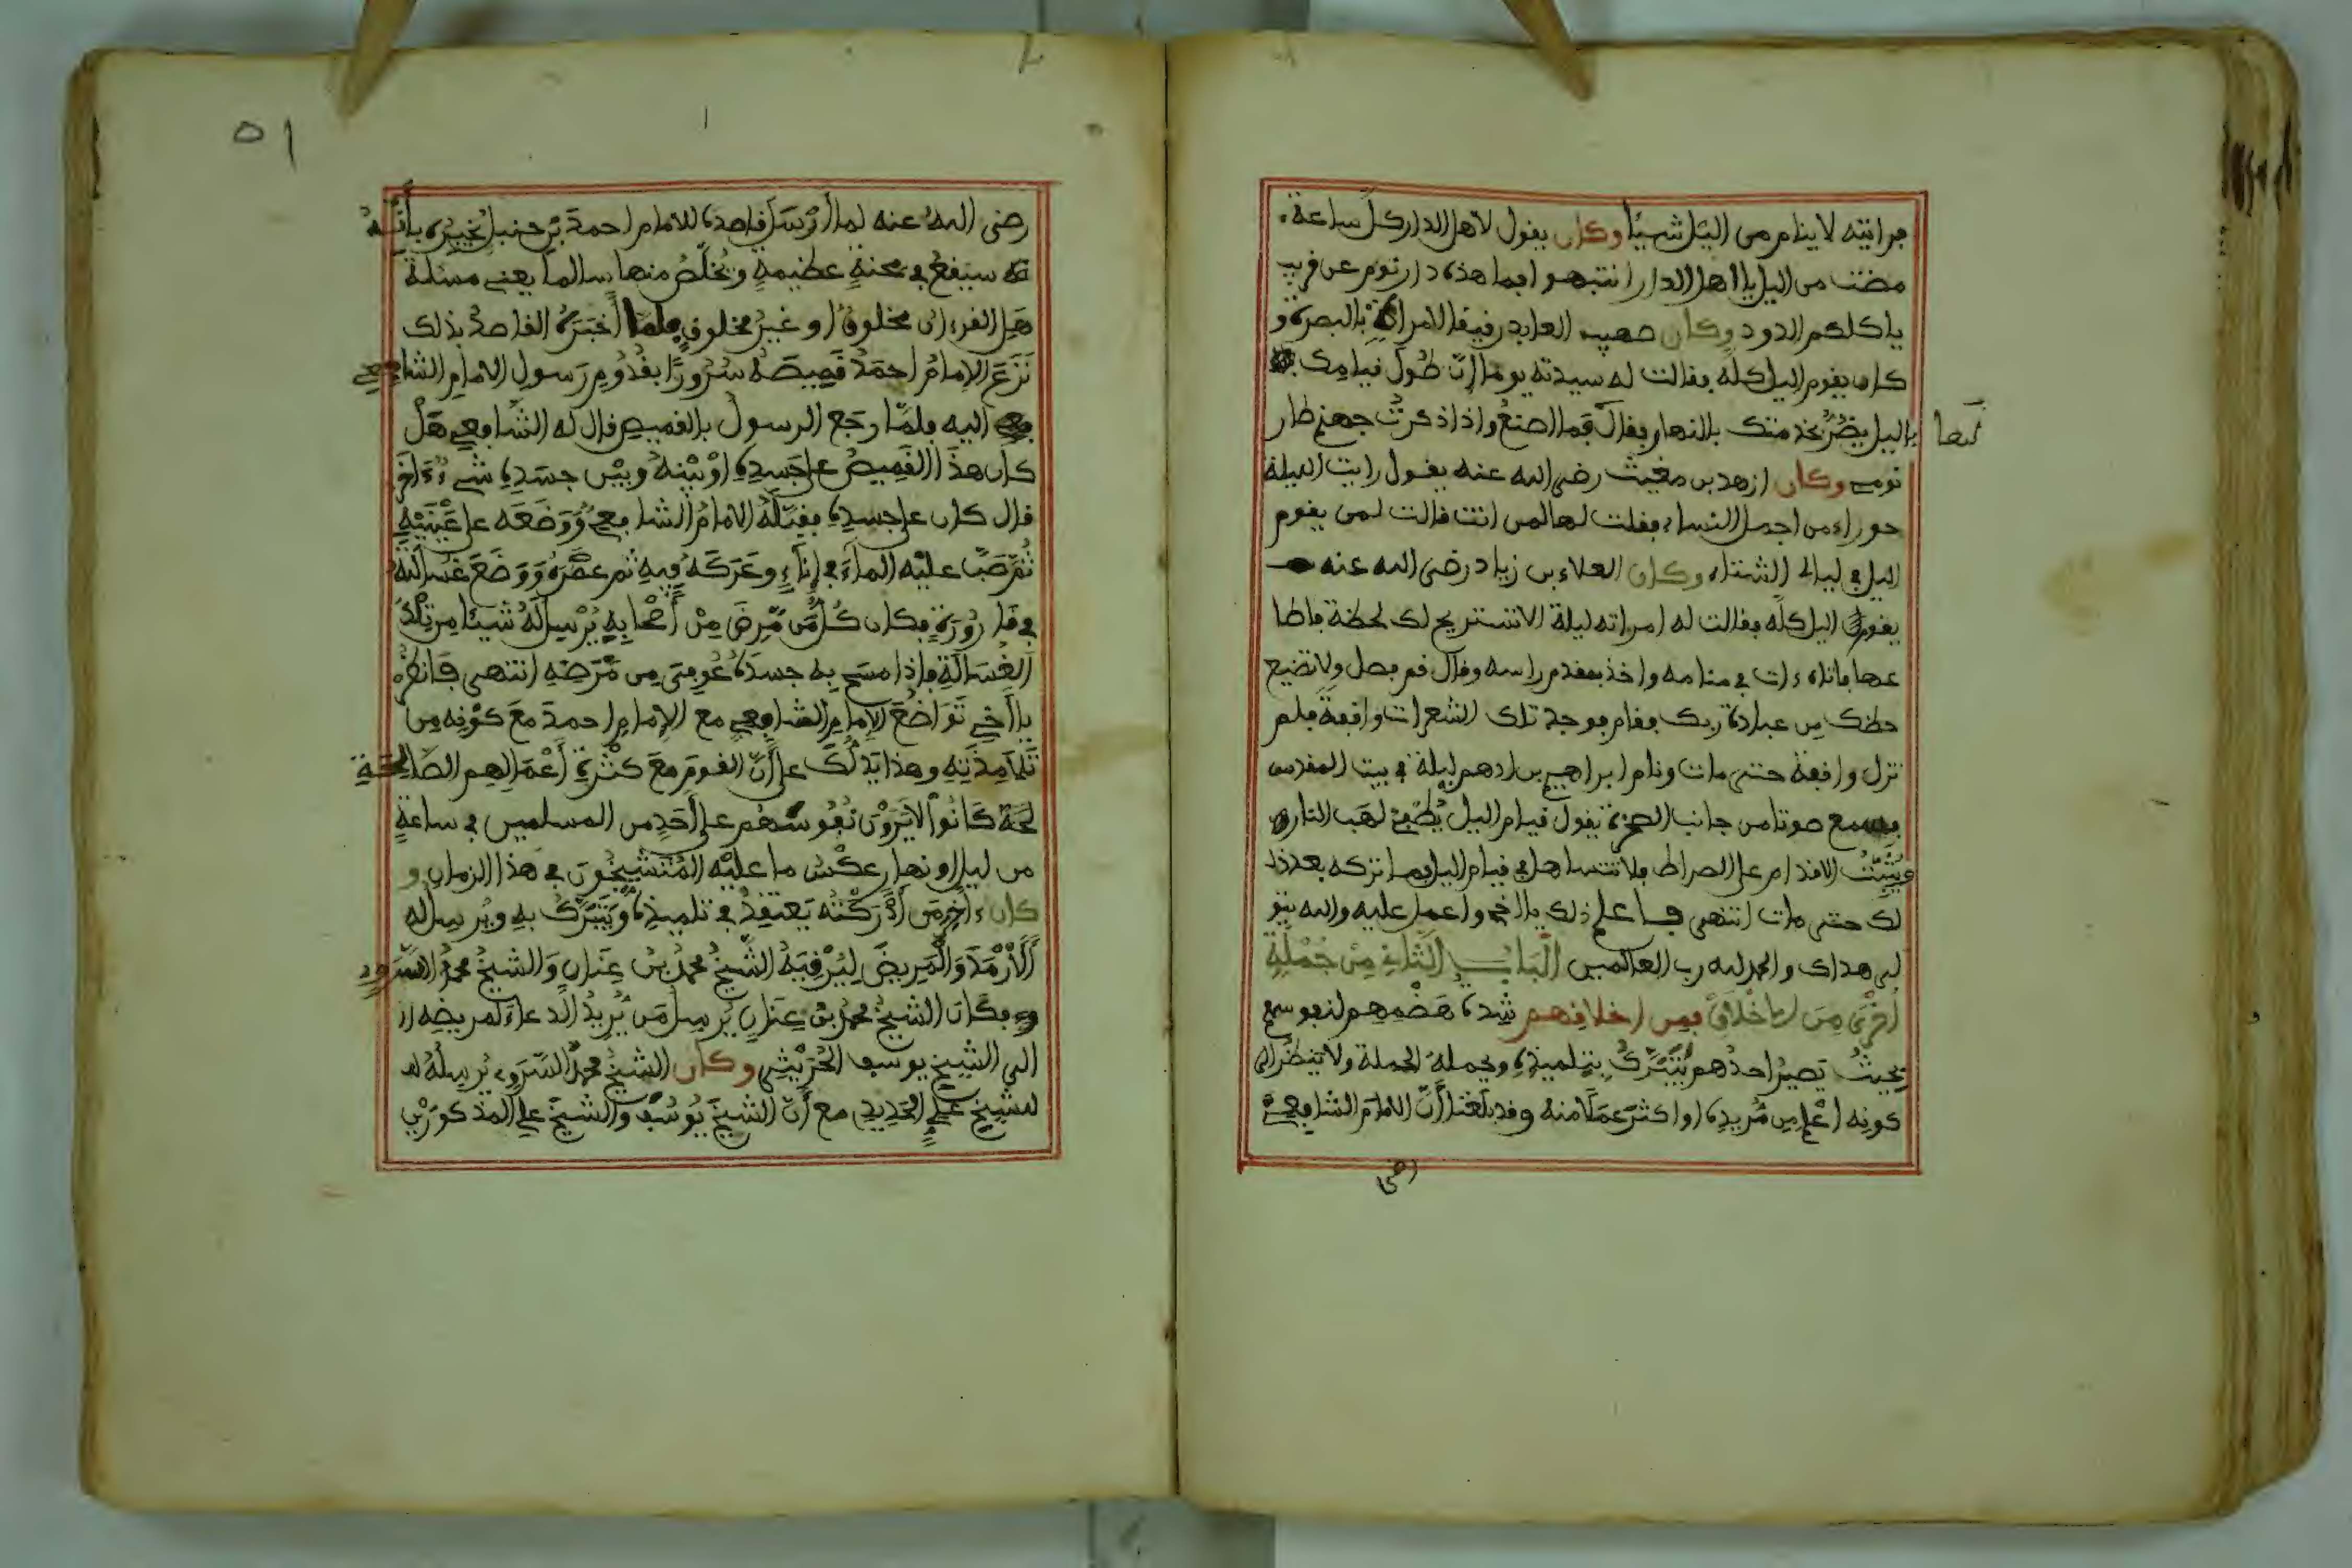 فرأيته لا ينام من اليل شيئا وكان يقول لأهل الدار كل ساعة
مضت من اليل يا أهل الدار انتبهوا فما هذه دار نوم عن قريب
ياكلكم الدود وكان صهيب العابد رقيقا لامراة بالبصرة و
كان يقوم اليل كله فقالت له سيدته يوما إنّ طُولَ قيامك
باليل يضُرُّ بخدمتك بالنهار فقال فما اصنعُ واذا ذكرتُ جهنم طار
نومي وكان ازهد بن مغيث رضي الله عنه يقول رايت الليلة
حوراء من اجمل النساء فقلت لها لمن انت قالت لمن يقوم
اليل في ليالي الشتاء وكان العلاء بن زياد رضي الله عنه
يقوم اليل كله فقالت له امراته ليلة الا تستريح لك لحظة فاطا
عها فاتاه ءات في منامه واخذ بمقدم راسه وقال قم فصل ولا تضيع
حظك من عبادة ربك فقام فوجد تلك الشعرات واقفة فلم
تزل واقفة حتى مات ونام ابراهيم بن ادهم ليلة في بيت المقدس
فسمع صوتا من جانب الصخرة يقول قيام اليل يُطْفِئ لهَب النار و
يُثَبِّتُ الاقدام على الصراط فلا تتساهل في قيام اليل فما تركه بعد ذ
لك حتى مات انتهى فاعلم ذلك يا اخي واعمل عليه والله يتو
لى هداك والحمد لله رب العالمين الْبَابُ الثَّانِي مِنْ جُمْلَةٍ
أُخْرَى مِنَ الأَخْلَاقِ فمن اخلاقهم شِدة هَضْمِهِم لنفوسهم
بحيثُ يَصيرُ احدُهم يَتَبَرَّكُ بِتِلميذِهِ ويحمله الحملة ولا ينظُر الى
كونه اعْلم من مُرِيدِهِ او اكثرَ عمَلًا منه وقد بلَغنا أنّ الامامَ الشافعي
رضي
رضي الله عنه لما أرْسَل قاصدَه للامام احمدَ بْنِ حنبل يُخْبِرُه بأنَّهُ
سيَقعُ في محنةٍ عظيمةٍ ويُخلّصُ منها سالما يعني مسئلة
هَلِ القرءان مخلوقٌ او غَيرُ مخلوقٍ فلما أخبَرَهُ القاصدُ بذلك
نَزَعَ الإمامُ احمَدُ قمِيصَهُ سُرُورًا بقُدُومِ رَسولِ الامامِ الشافعي
اليه فلمّا رجَع الرسولُ بالقميص قال له الشافعي هَلْ
كان هذَا القَمِيصُ على جَسدِهِ اوْ بيْنهُ وبَيْن جسَدِهِ شيءٌ ءَاخَرُ
قال كان على جسدِهِ فقبّلهُ الامامُ الشافعي ووَضعَه على عَيْنَيْهِ
ثُمّ صَبّ عليْه الماءَ في إِناءٍ وعَرَكَه فيهِ ثم عصَرَهُ ووَضَعَ غُسالتَهُ
في قارُورَةٍ فكان كُلُّ مَن مَّرِضَ مِنْ أَصْحَابِهِ يُرْسِل لَهُ شيئًا من تِلْكَ
الغُسَالَةِ فإذا مسَح بِه جسدَهُ عُوفِيَ مِن مَّرَضِهِ انتهى فَانظُرْ
يا أَخِي تَوَاضُعَ الإمامِ الشافعي مع الإمامِ احمدَ معَ كوْنِه مِن
تَلَامِذَتِهِ وهذا يَدُلُّكَ على أَنّ القومَ معَ كثْرَةِ أَعْمَالِهِم الصَّالِحَةِ
كَانُوا لا يَرَوْنَ نُفُوسَهُم على أحَدٍ من المسلمين في ساعةٍ
من ليل او نهار عكْسُ ما عليْه المُتَشَيِّخُونَ في هذا الزمان و
كان ءاخِر مَن أدْرَكْتُه يَعتقدُ في تلميذِهِ وَيَتَبَرَّكُ بِهِ ويُرسِل له
الأرْمَدَ والْمَرِيضَ لِيَرْقِيَهُ الشّيْخُ محمدُ بنُ عِنَانٍ وَالشيخُ محمدٌ السَّرَوِي
فكَانَ الشيخُ محمدُ بْنُ عِنَانٍ يُرسِل مَن يُّرِيدُ الدعاءَ لمريضِه
الى الشيخ يوسف الحُرَيْثِي وكان الشيخُ محمدٌ السَّرَوِي يُرسِلُهُ
للشيخ عَلِي الحَدِيدِي مع أنّ الشيخَ يُوسُفَ والشيخَ علي المذكورَيْنِ